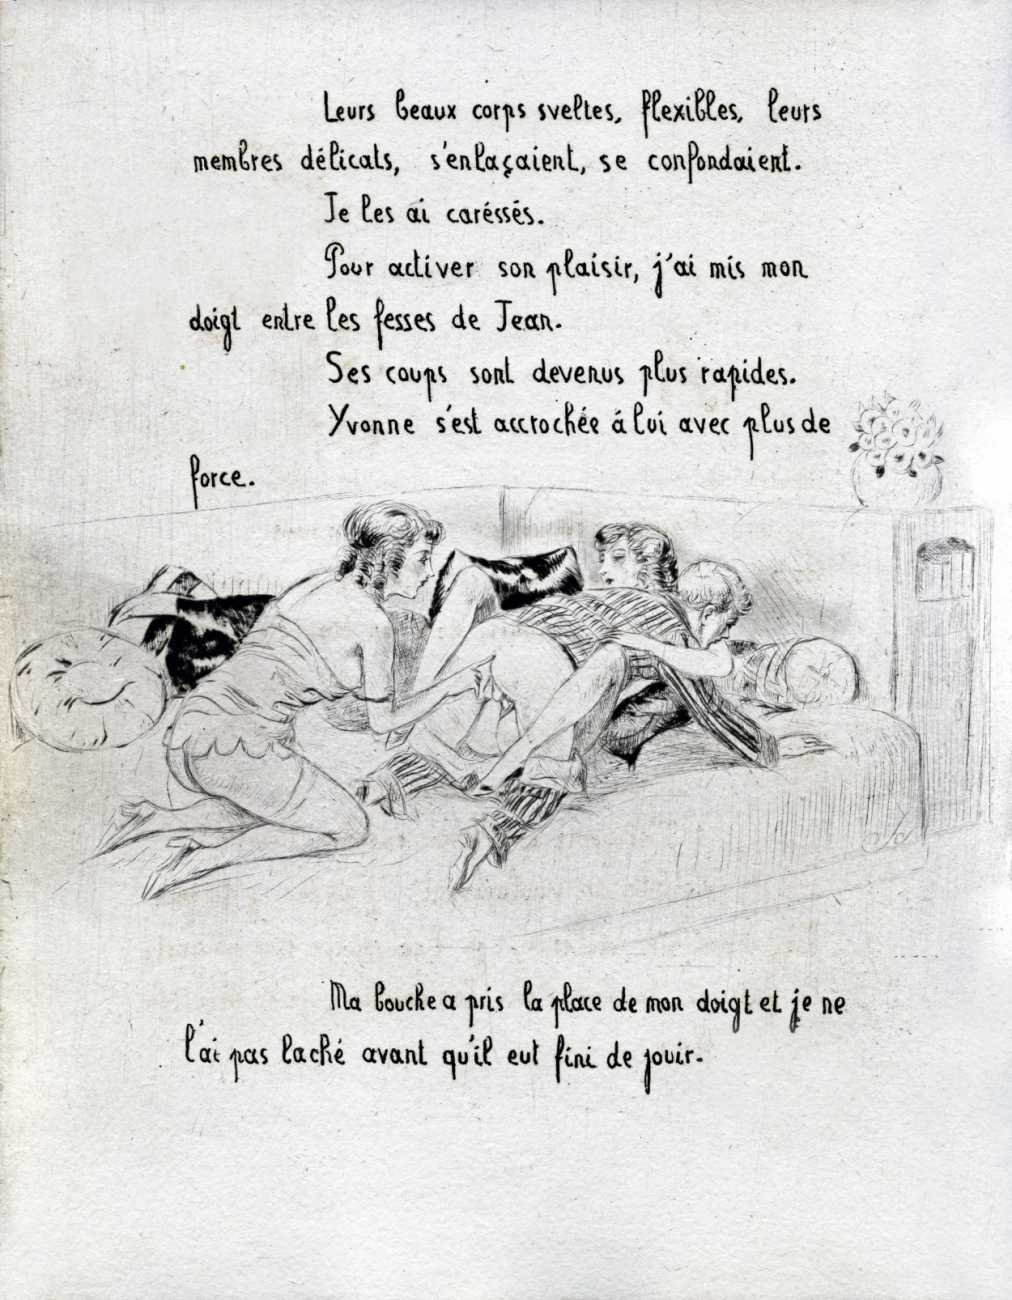 Leurs beaux corps sveltes, flexibles, leurs
membres délicats, s'enlaçaient, se confondaient.
Je les ai caréssés.
Pour activer son plaisir, j'ai mis mon
doigt entre les fesses de Jean.
Ses coups sont devenus plus rapides.
Yvonne s'est accrochée á lui avec plus de
force.
Ma bouche a pris la place de mon doigt et je ne
l'ai pas laché avant qu'il eut fini de jouir.